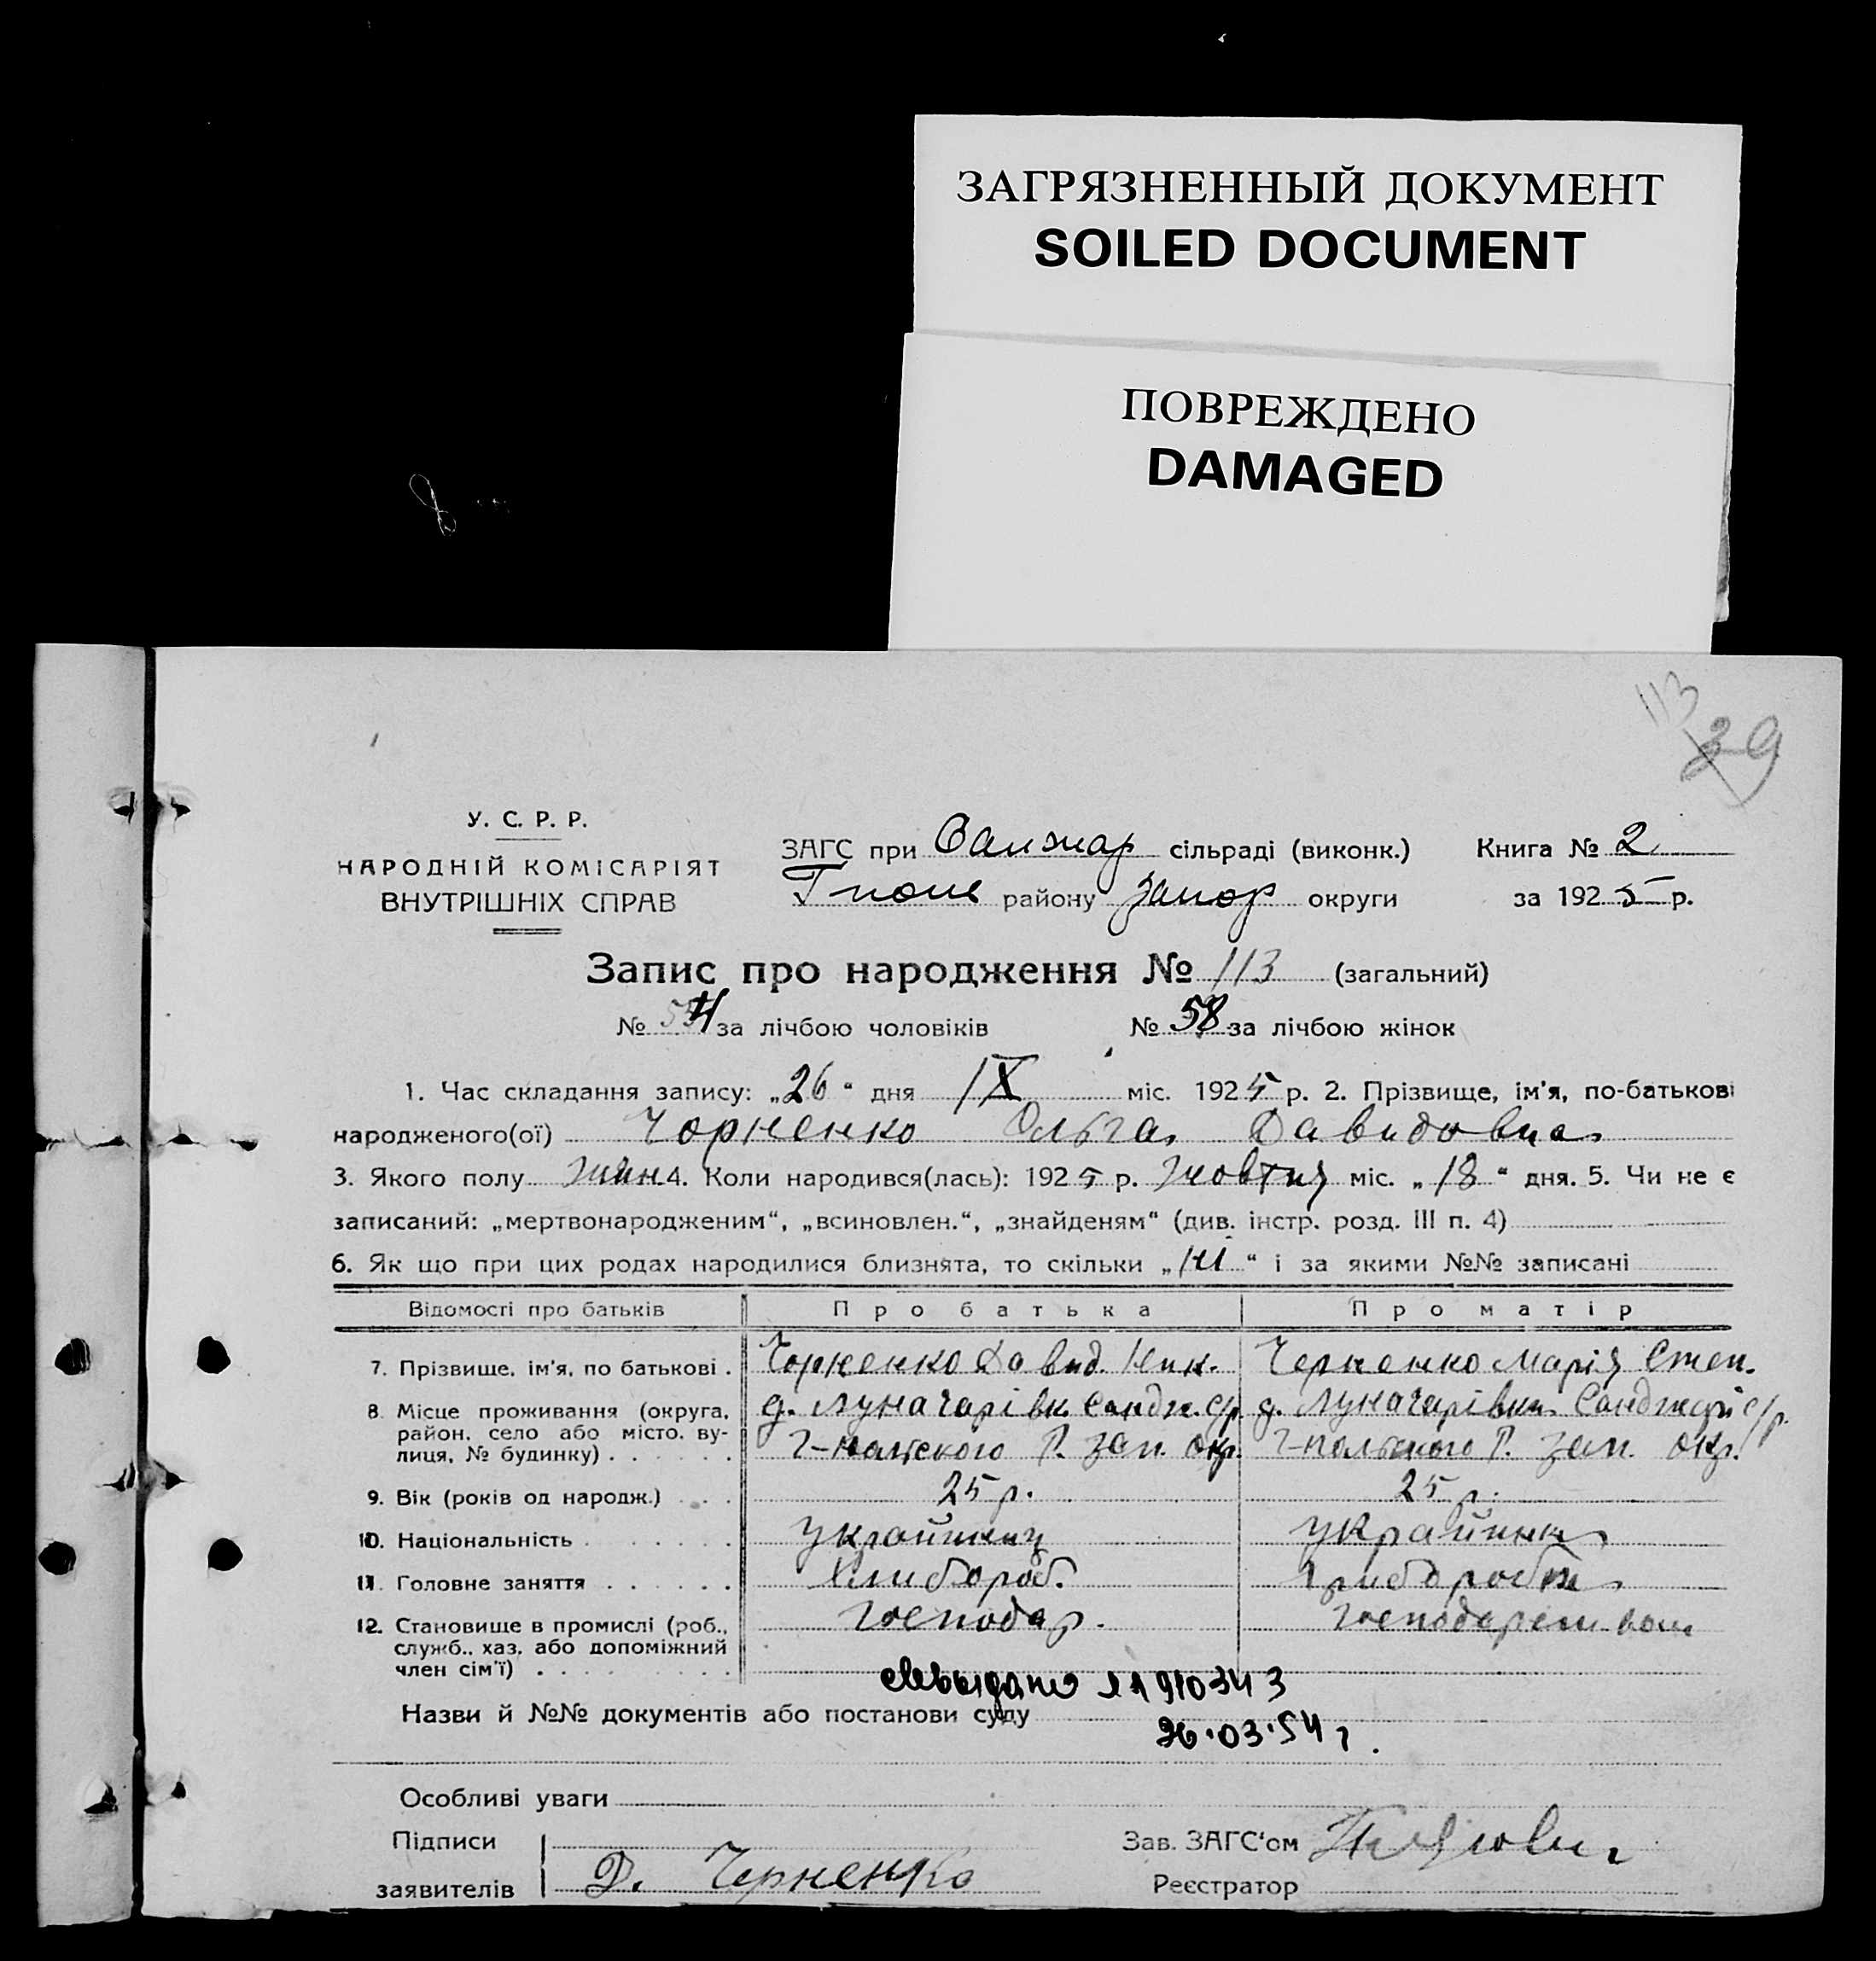 ЗАГРЯЗНЕННЫЙ ДОКУМЕНТ
SOILED DOCUMENT
ПОВРЕЖДЕНО
DAMAGED
113
39
У. С. Р. Р.
НАРОДНІЙ КОМІСАРІЯТ
ВНУТРІШНІХ СПРАВ
ЗАГС при Санжар сільраді (виконк.) Книга № 2
району Запор округи за 1925 р.
Запис про народження № 113 (загальний)
№ за лічбою чоловіків № 58 за лічбою жінок
1. Час складання запису: „26“ дня IX міс. 1925 р. 2. Прізвище, ім'я, по-батькові
народженого(ої) Чорненко Ольга Давидовна
3. Якого полу жін 4. Коли народився(лась): 1925 р. жовтня міс. „18“ дня. 5. Чи не є
записаний: „мертвонародженим“, „всиновлен.“, „знайденям“ (див. інстр. розд. III п. 4)
6. Як що при цих родах народилися близнята, то скільки „ні“ і за якими №№ записані
Відомості про батьків Про батька Про матір
7. Прізвище, ім'я, по батькові . Чорненко Давид. Ник. Черненко Марія Степ.
8. Місце проживання (округа, д. Луначарівк Сандж. с/р д. Луначарівка с/р.
район, село або місто, ву- Г-польского Р. Зап. окр. Г-польского Р. Зап. окр.
лиця, № будинку) . . . . . .
9. Вік (років од народж.) . . . 25 р. 25 р.
10. Національність . . . . . . . українец українка
11. Головне заняття . . . . . . хлибороб. хлиборобка
12. Становище в промислі (роб., господар.
служб., хаз. або допоміжний
член сім'ї) . . . . . . . . .
Назви й №№ документів або постанови суду
26.03.54 г.
Особливі уваги
Підписи Зав. ЗАГС'ом
заявителів Д. Черненко Реєстратор